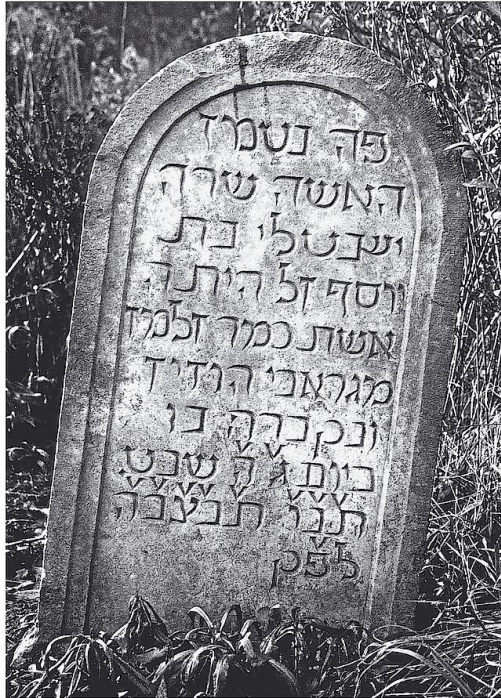 פה נטמן
האשה שרה
יענטלי בת
יוסף זל היתה
אשת כמר זלמן
מגראבי
ונקברה בו
ביום ג ה שבט
תנו תנצבה
לפק